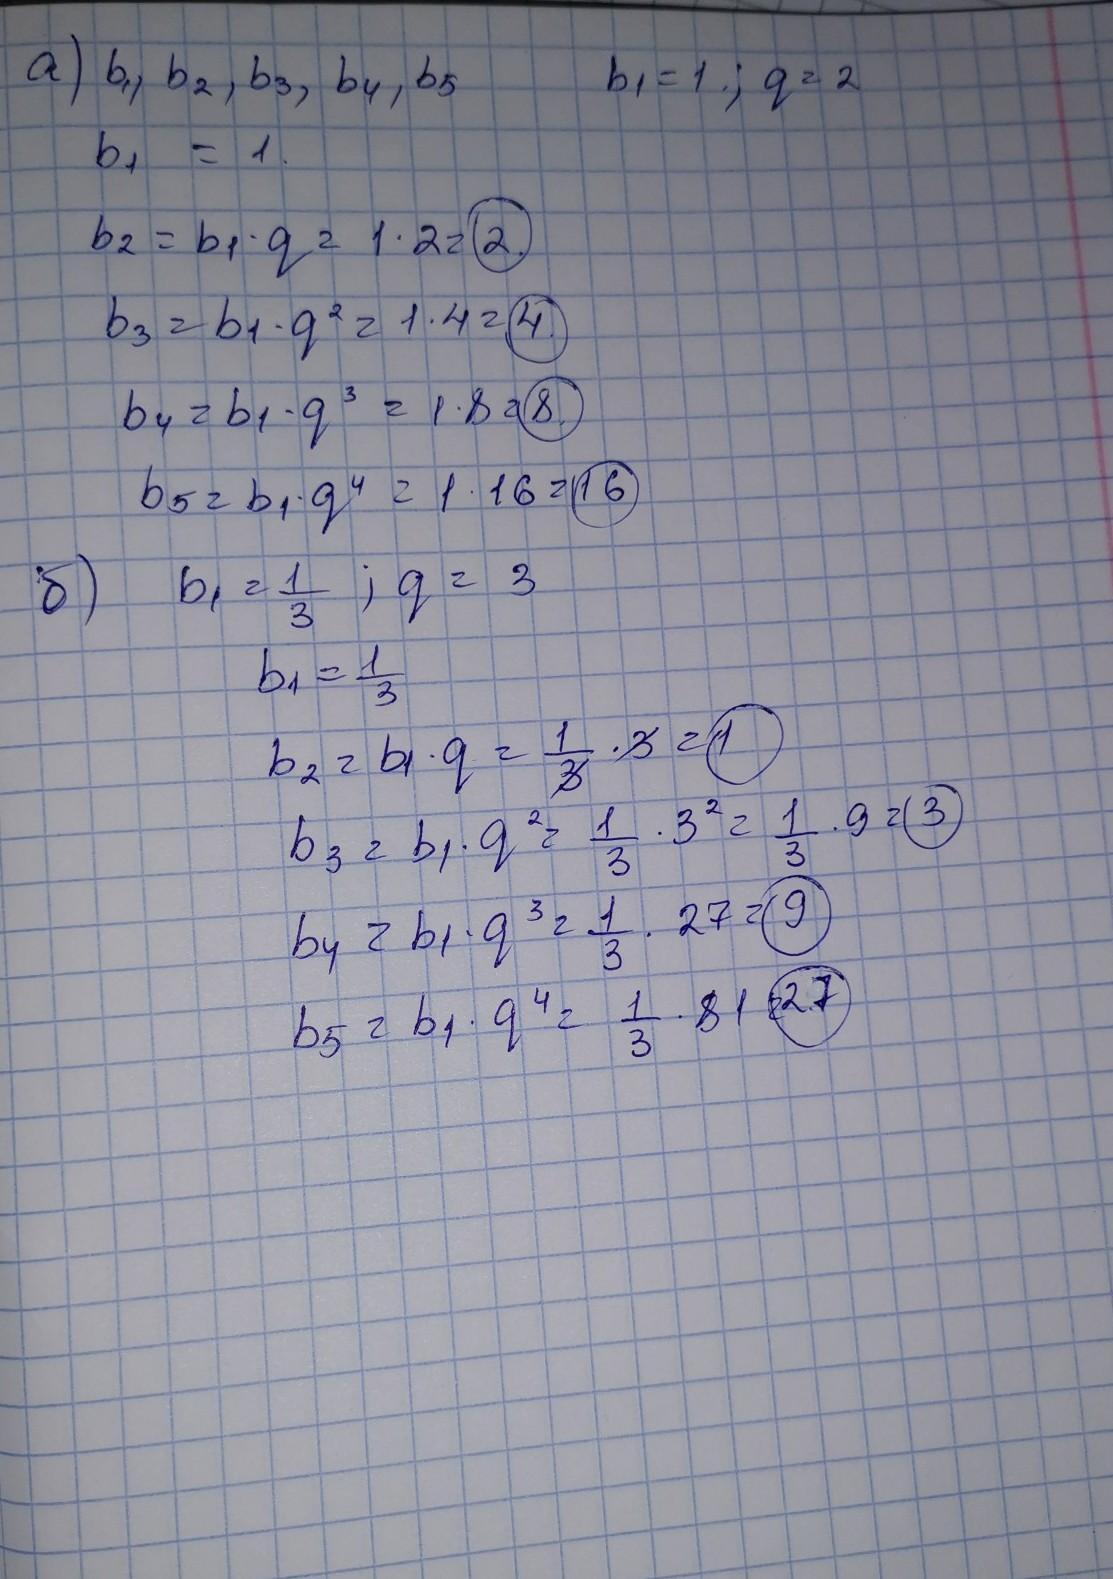 а) b₁, b₂, b₃, b₄, b₅ b₁ = 1.; q = 2
b₁ = 1.
b₂ = b₁ · q = 1 · 2 = 2.
b₃ = b₁ · q² = 1 · 4 = 4.
b₄ = b₁ · q³ = 1 · 8 = 8.
b₅ = b₁ · q⁴ = 1 · 16 = 16
б) b₁ = 1/3 ; q = 3
b₁ = 1/3
b₂ = b₁ · q = 1/3 · 3 = 1
b₃ = b₁ · q² = 1/3 · 3² = 1/3 · 9 = 3
b₄ = b₁ · q³ = 1/3 · 27 = 9
b₅ = b₁ · q⁴ = 1/3 · 81 = 27